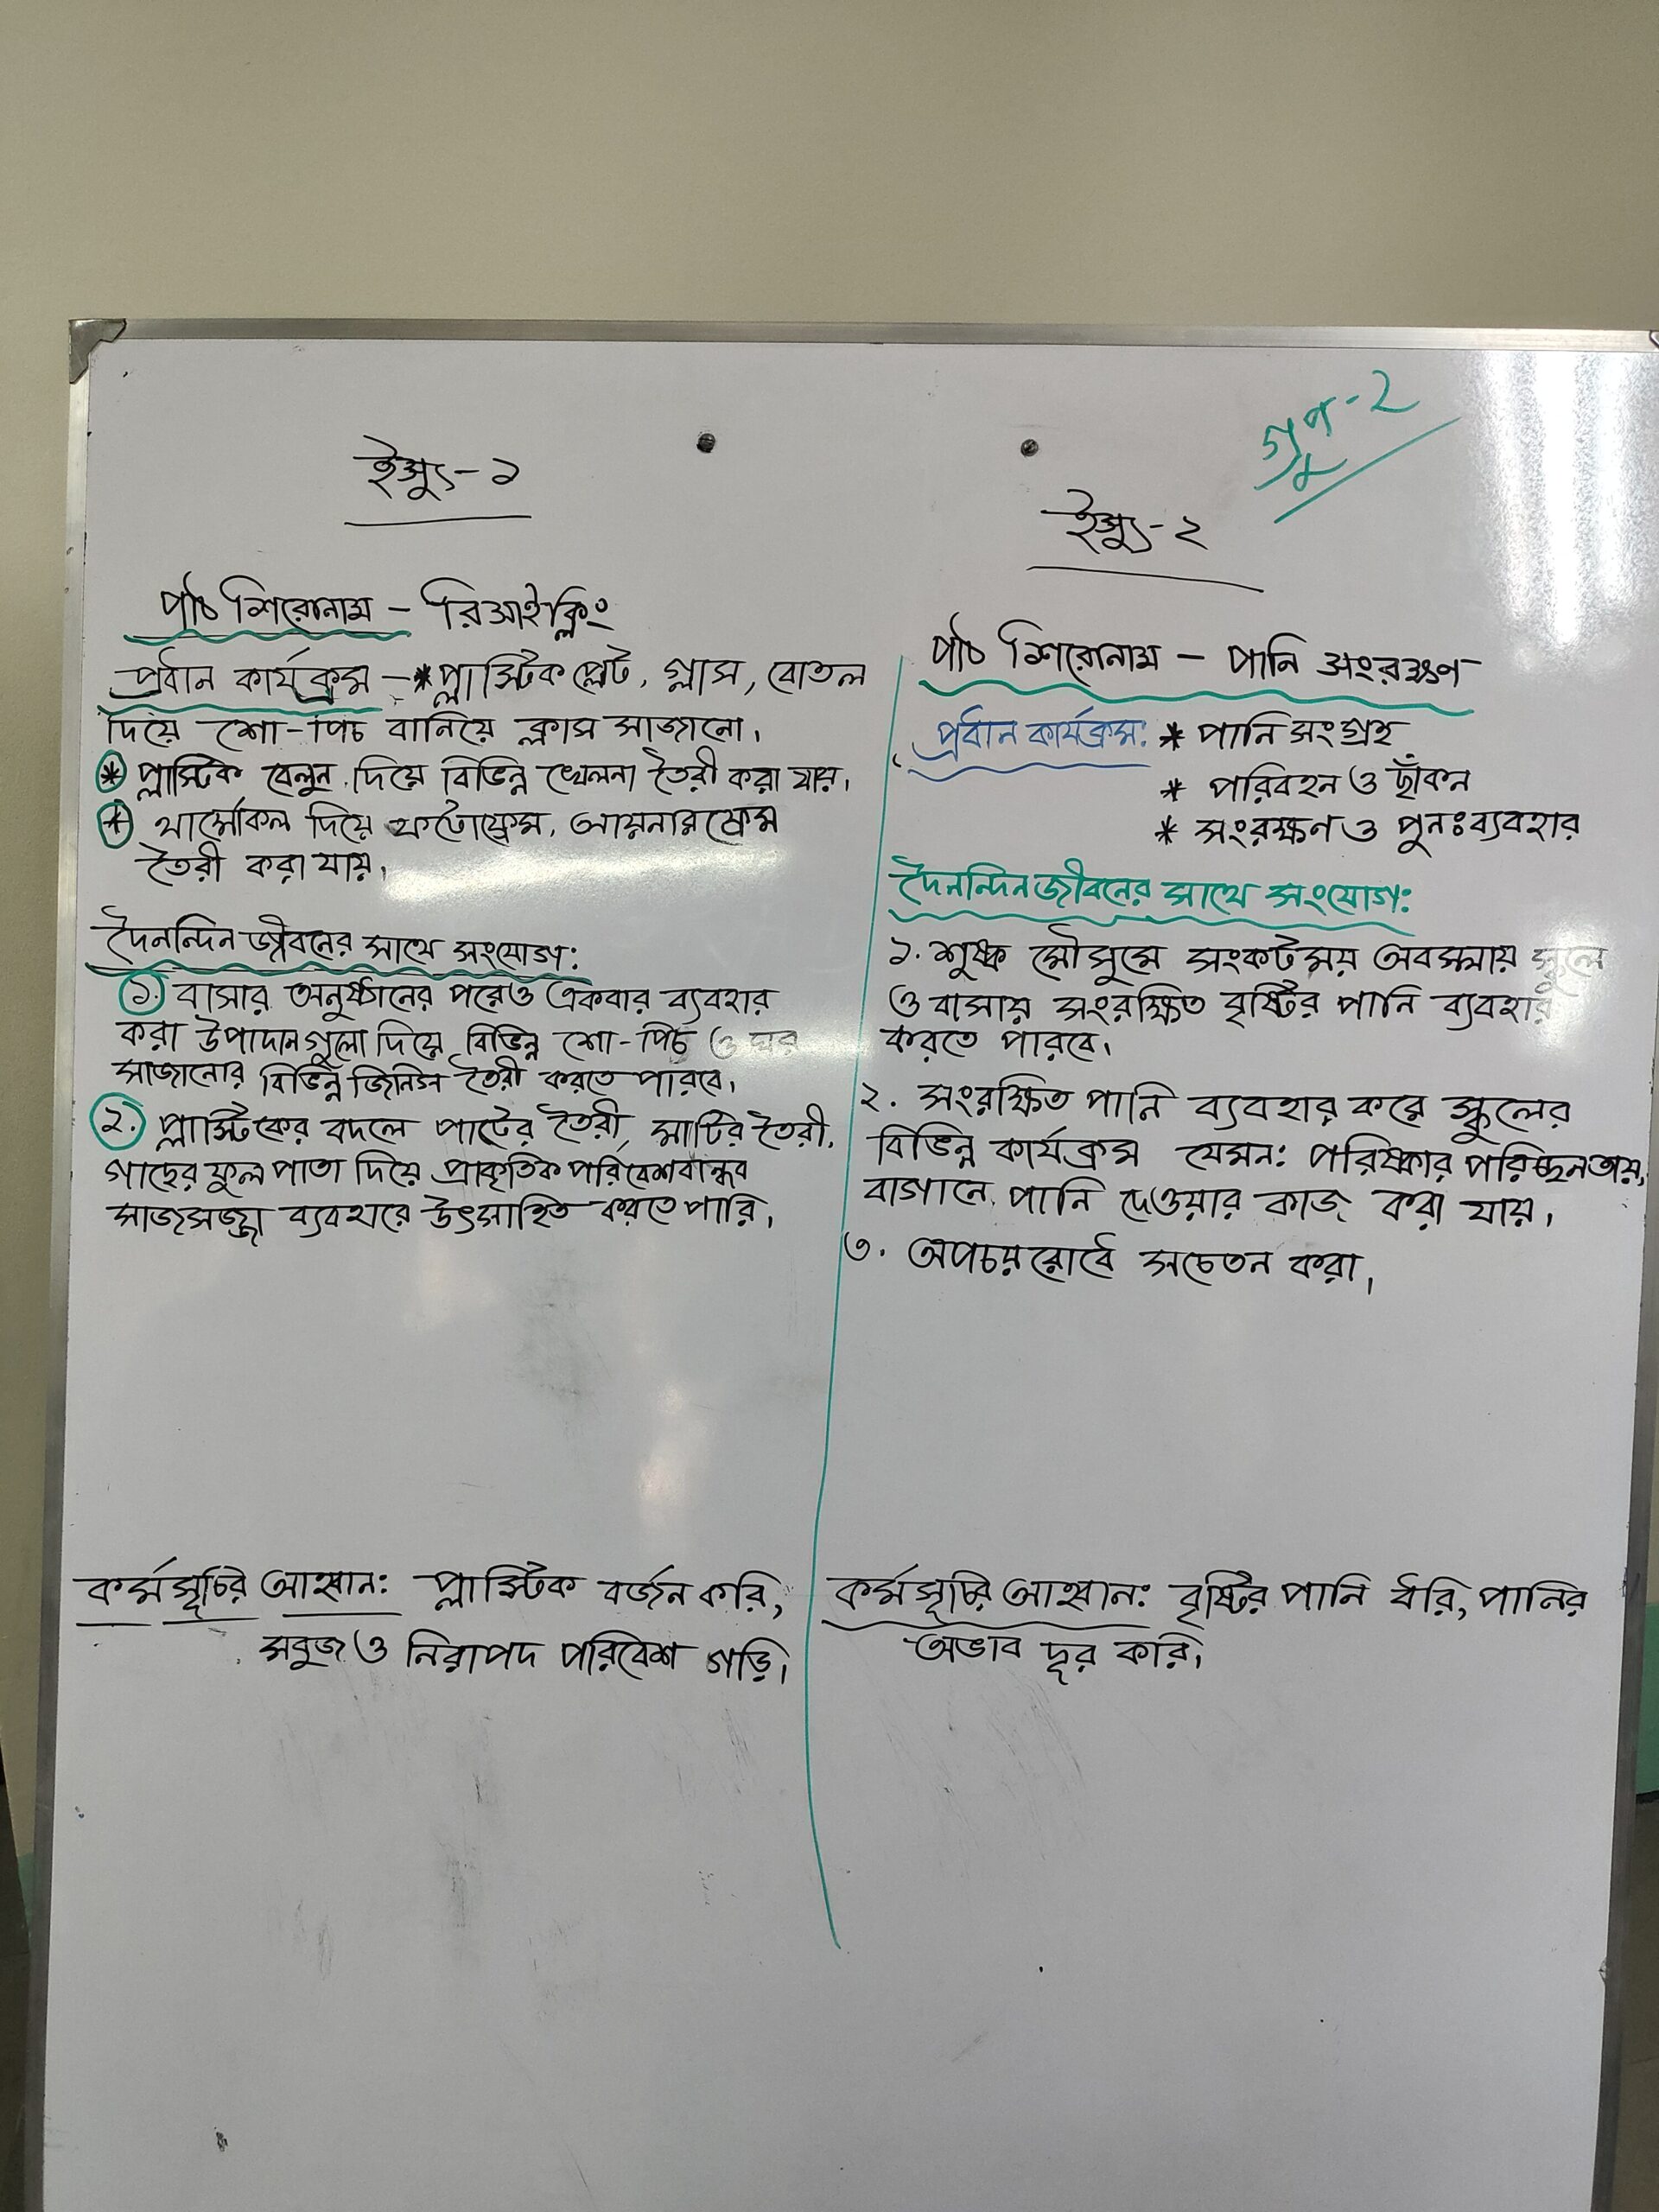 গ্রুপ-2
ইস্যু-১
পাঠ শিরোনাম - রিসাইক্লিং
প্রধান কার্যক্রম - * প্লাস্টিক প্লেট, গ্লাস, বোতল
দিয়ে শো-পিচ বানিয়ে ক্লাস সাজানো।
* প্লাস্টিক বেলুন দিয়ে বিভিন্ন খেলনা তৈরী করা যায়।
* থার্মোকল দিয়ে ফটোফ্রেম, আয়নার ফ্রেম
তৈরী করা যায়।
দৈনন্দিন জীবনের সাথে সংযোগ:
১. বাসার অনুষ্ঠানের পরেও একবার ব্যবহার
করা উপাদানগুলো দিয়ে বিভিন্ন শো-পিচ ও ঘর
সাজানোর বিভিন্ন জিনিস তৈরী করতে পারবে।
২. প্লাস্টিকের বদলে পাটের তৈরী, মাটির তৈরী,
গাছের ফুল পাতা দিয়ে প্রাকৃতিক পরিবেশবান্ধব
সাজসজ্জা ব্যবহারে উৎসাহিত করতে পারি।
কর্মসূচির আহ্বান: প্লাস্টিক বর্জন করি,
সবুজ ও নিরাপদ পরিবেশ গড়ি।
ইস্যু-২
পাঠ শিরোনাম - পানি সংরক্ষণ
প্রধান কার্যক্রম: * পানি সংগ্রহ
* পরিবহন ও ছাঁকন
* সংরক্ষণ ও পুনঃব্যবহার
দৈনন্দিন জীবনের সাথে সংযোগ:
১. শুষ্ক মৌসুমে সংকটময় অবস্থায় স্কুলে
ও বাসায় সংরক্ষিত বৃষ্টির পানি ব্যবহার
করতে পারবে।
২. সংরক্ষিত পানি ব্যবহার করে স্কুলের
বিভিন্ন কার্যক্রম যেমন: পরিষ্কার পরিচ্ছনতায়,
বাগানে পানি দেওয়ার কাজ করা যায়।
৩. অপচয়রোধে সচেতন করা।
কর্মসূচির আহ্বান: বৃষ্টির পানি ধরি, পানির
অভাব দূর করি।